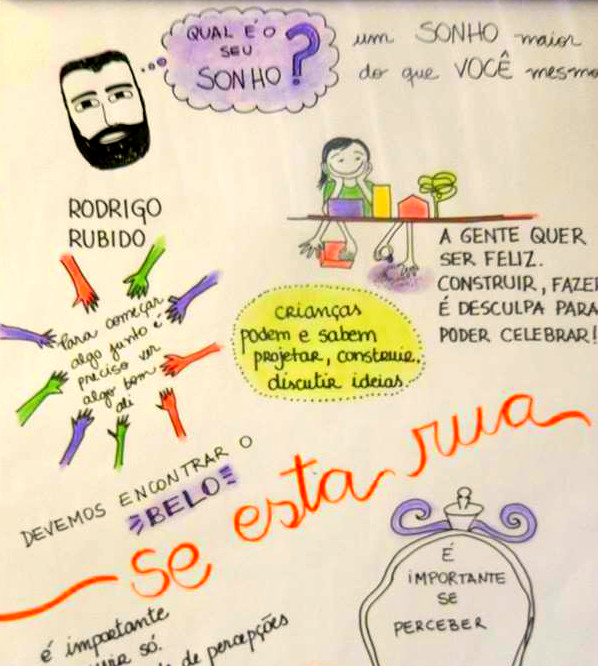 QUAL É O
SEU
SONHO ?
um SONHO maior
do que VOCÊ mesmo
RODRIGO
RUBIDO
Para começar
algo junto é
preciso ver
algo bom
ali
A GENTE QUER
SER FELIZ.
CONSTRUIR, FAZER
É DESCULPA PARA
PODER CELEBRAR!
crianças
podem e sabem
projetar, construir,
discutir ideias.
DEVEMOS ENCONTRAR O
BELO
se esta rua
É
IMPORTANTE
SE
PERCEBER
é importante
só.
de percepções